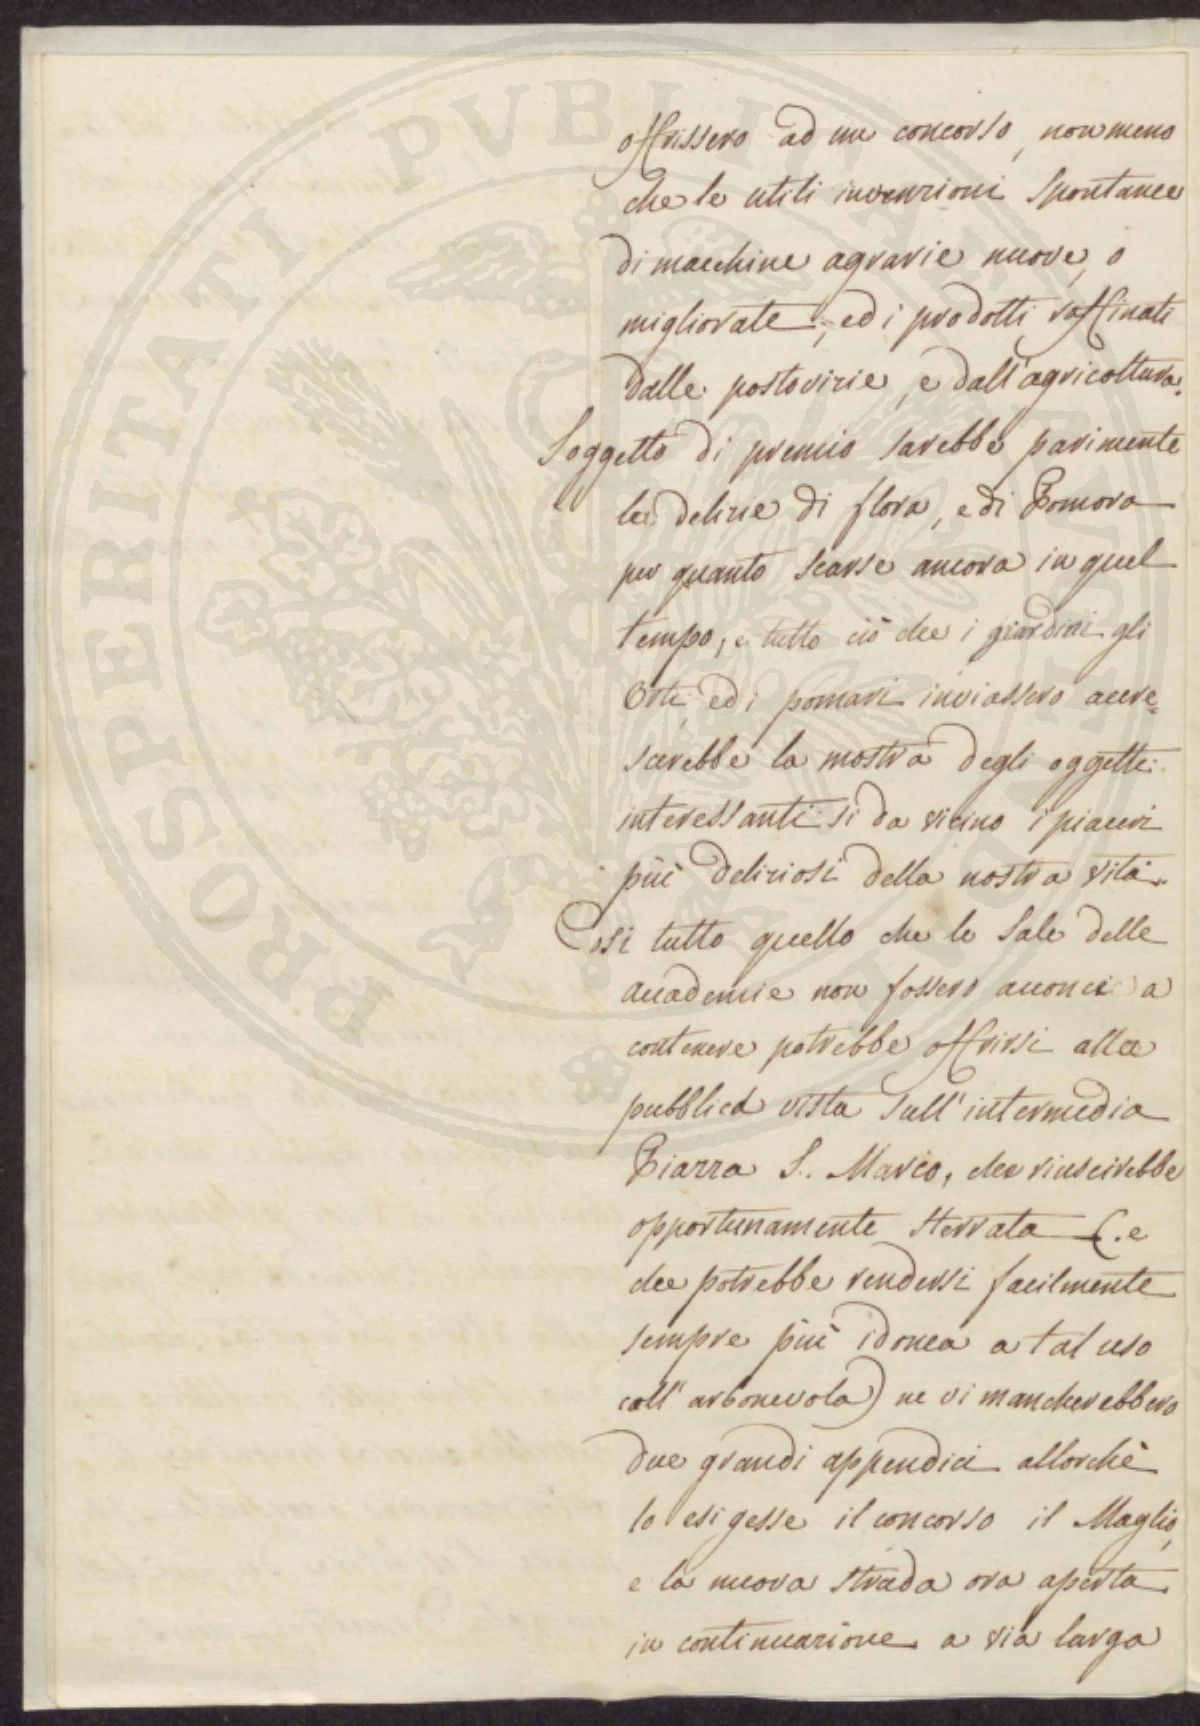 offrissero ad un concorso, non meno
che le utili invenzioni spontanee
di macchine agrarie nuove, o
migliorate, ed i prodotti raffinati
dalle pastorizie, e dall'agricoltura.
Soggetto di premio sarebbe parimente
le delizie di flora, e di Pomona
per quanto scarse ancora in quel
tempo, e tutto ciò che i giardini gli
Orti, ed i pomari inviassero accre=
scerebbe la mostra degli oggetti
interessanti sì da vicino i piaceri
più deliziosi della nostra vita.
Così tutto quello che le Sale delle
accademie non fossero acconcie a
contenere potrebbe offrirsi alla
pubblica vista sull'intermedia
Piazza S. Marco, che riuscirebbe
opportunamente sterrata (. e
che potrebbe rendersi facilmente
sempre più idonea a tal uso
coll'arbonevola) ne vi mancherebbero
due grandi appendici allorchè
lo esigesse il concorso il Maglio,
e la nuova strada ora aperta
in continuazione a via larga
PROSPERITATI PUBLICAE